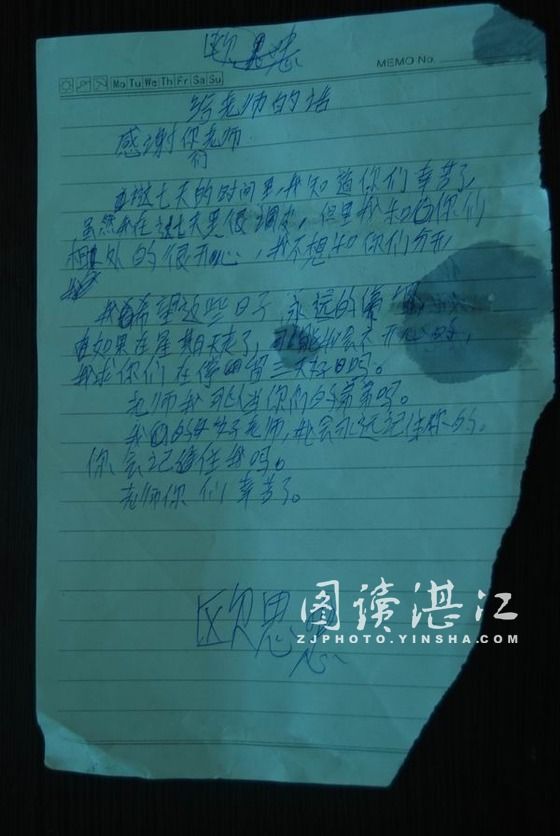 欧思恩
MEMO No.
Mo Tu We Th Fr Sa Su
给老师的话
感谢你们老师
在这七天的时间里,我知道你们辛苦了,
虽然我在这七天里很调皮,但是我和你们
相处的很开心,我不想和你们分开,
我希望这些日子,永远的停留
如果在星期日走了,可能我会不开心
我求你们在停留三天好吗。
老师我可以当你们的弟弟吗。
我的好老师,我会永远记住你的。
你会记住我吗。
老师你们辛苦了。
欧思恩
图读湛江
ZJPHOTO.YINSHA.COM